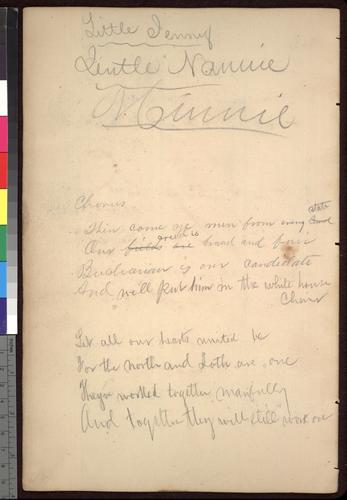 Little Jenny
Gentle Nannie
Minnie
Chorus
Then come ye men from every state
Our field is broad and fair
Buchanan is our candidate
And will put him in the white house
Chorus
Let all our hearts united be
For the north and Soth are one
They've worked together manfully
And together they will still work on